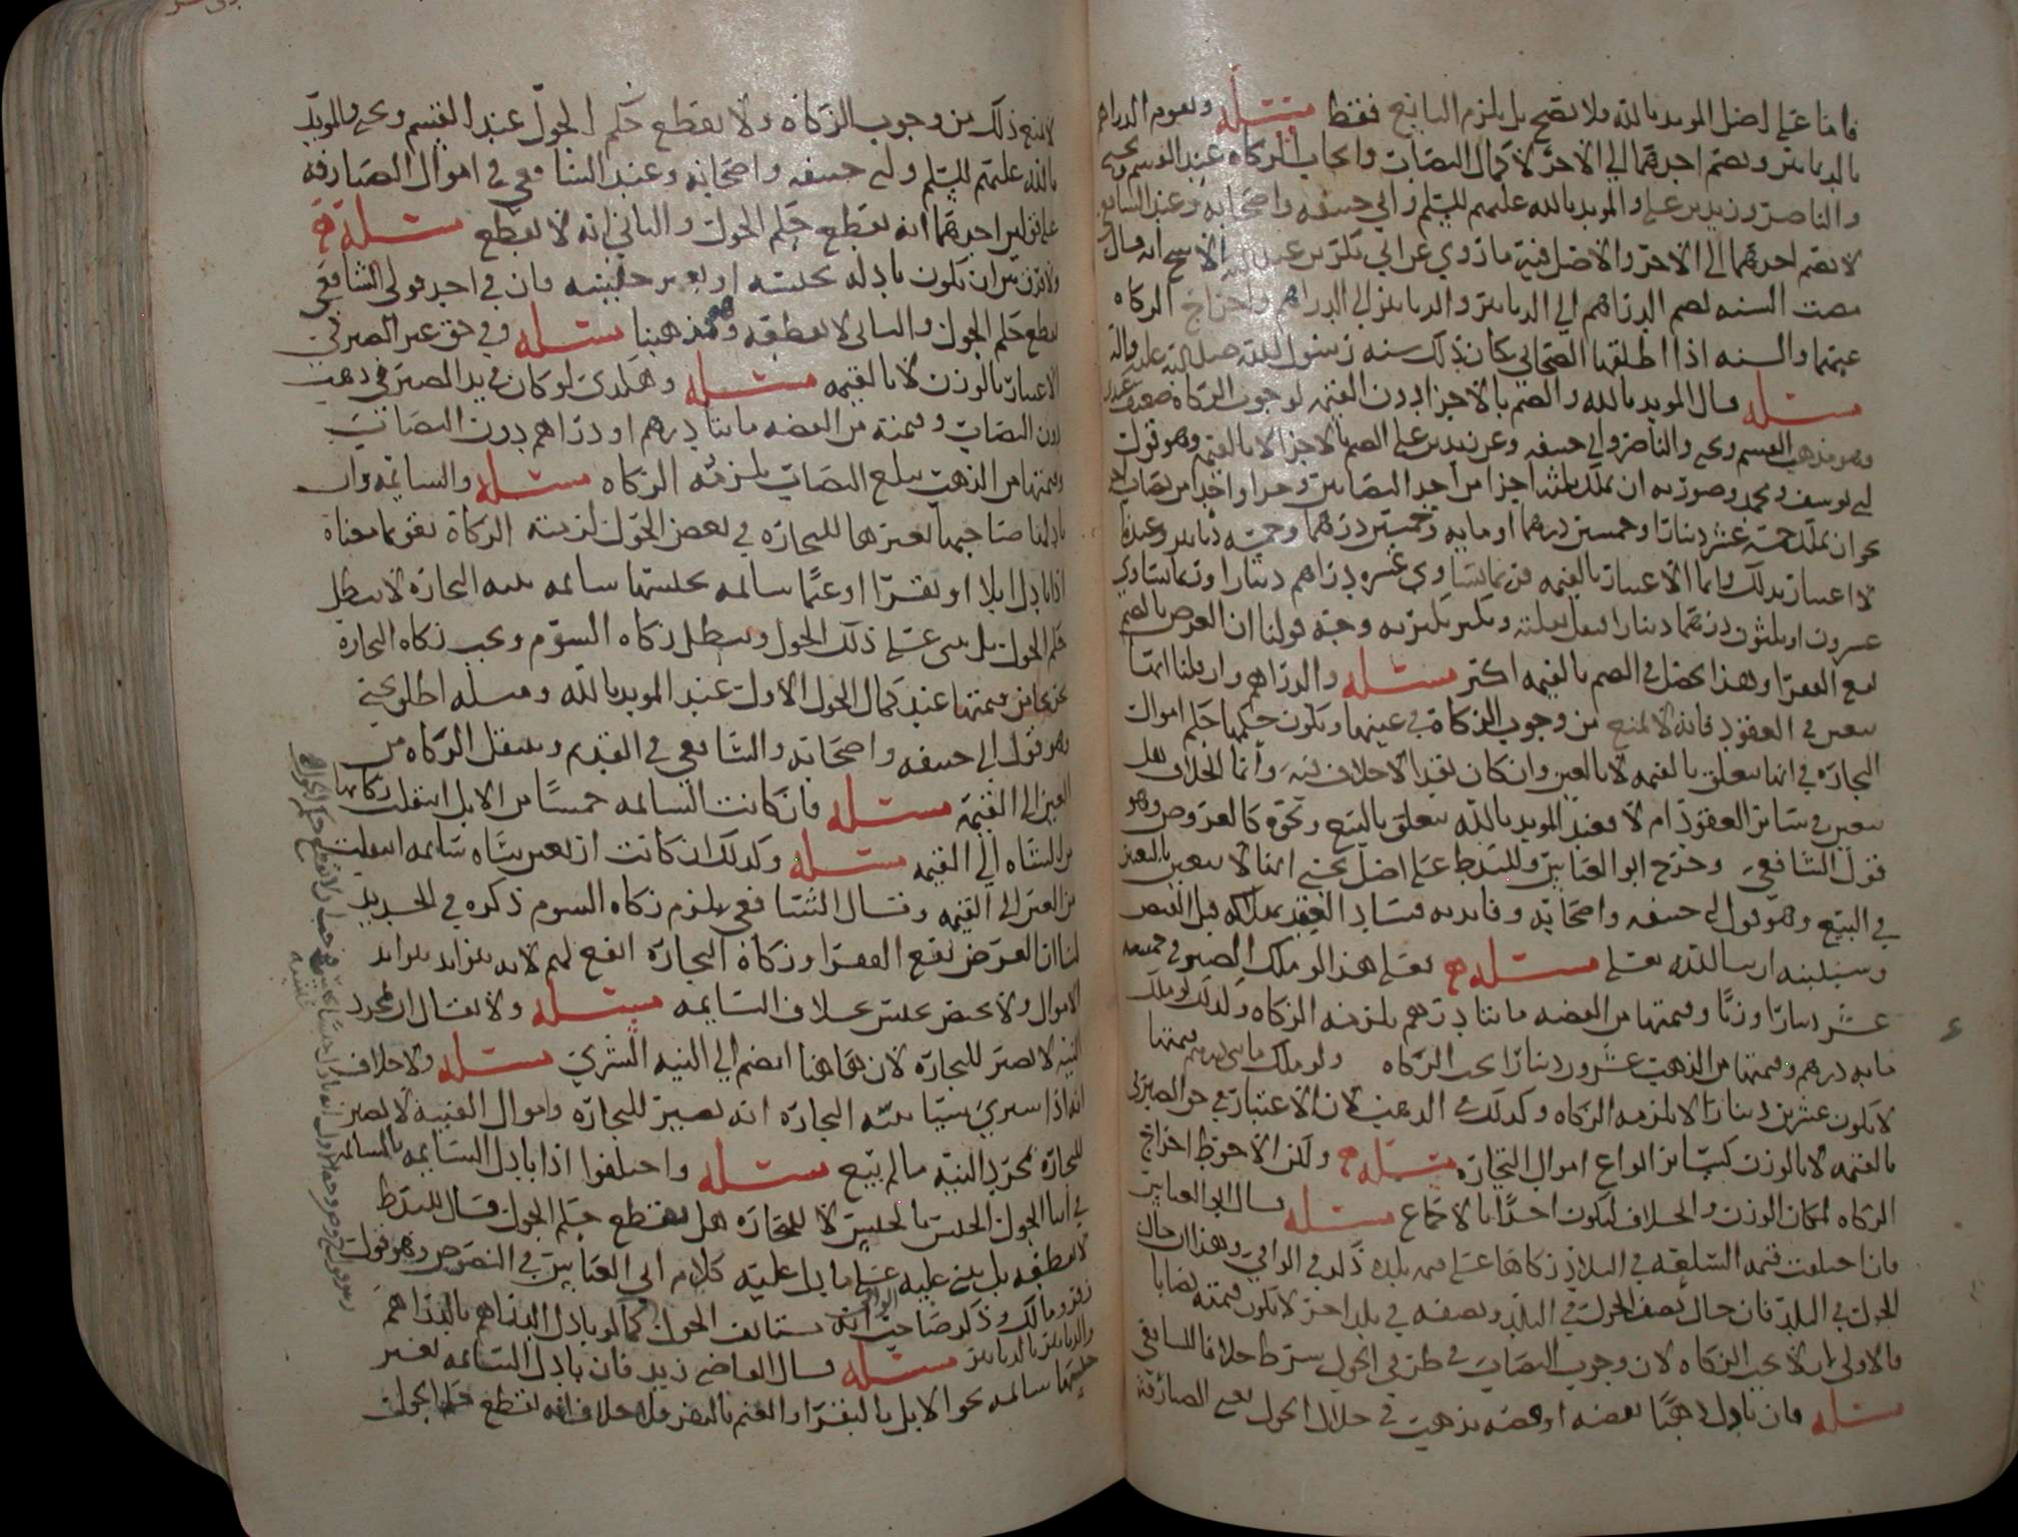 فاما على اصل المويد بالله فلا يصح بل يلزم البايع فقط مسئله وتقوم الدراهم
بالدنانير ويضم احدهما الى الاخر لاكمال النصاب وايجاب الزكاه عند القسم ويحيى
والناصر وزيد بن علي والمويد بالله عليهم السلم وابي حنيفه واصحابه وعند الشافعي
لا يضم احدهما الى الاخر والاصل فيه ما روي عن ابي بكر بن عبد الله الاشج انه قال
مضت السنه لضم الدراهم الى الدنانير والدنانير الى الدراهم واخراج الزكاه
عنهما والسنه اذا اطلقها الصحابي كان ذلك سنه رسول الله صلى الله عليه واله
مسئله قال المويد بالله والضم بالاجزا دون القيمه لوجوب الزكاه
وهو مذهب القسم ويحيى والناصر وابي حنيفه وعن زيد بن علي الضم بالاجزا لا بالقيمه وهو قول
ابي يوسف ومحمد وصورته ان يملك ثلثه اجزا من احد النصابين وجزا واحدا من نصاب
نحو ان يملك خمسه عشر دينارا وخمسين درهما او مايه وخمسين درهما وخمسه دنانير وعندنا
لا اعتبار بذلك وانما الاعتبار بالقيمه فربما يساوي عشره دراهم دينارا وربما يساوي
عشرون او ثلثون درهما دينارا فيقل بقلته ويكثر بكثرته وجه قولنا ان الغرض بالضم
نفع الفقرا وهذا يحصل في الضم بالقيمه اكثر مسئله والدراهم وان قلنا انها
تتعين في العقود فانه لا يمنع من وجوب الزكاه في عينها ويكون حكمها حكم اموال
التجاره في انها تتعلق بالقيمه لا بالعين وان كان نقدا لا خلاف فيه وانما الخلاف هل
تتعين في سائر العقود ام لا فعند المويد بالله يتعلق بالبيع ونحوه كالعروض وهو
قول الشافعي وخرج ابو العباس وللسيد ط على اصل يحيى انها لا تتعين بالتعيين
في البيع وهو قول ابي حنيفه واصحابه وفايدته فساد العقد بهلاكه قبل القبض
وسنبينه ان شا الله تعلى مسئله فعلى هذا لو ملك الصيرفي خمسه
عشر دينارا وزنا وقيمتها من الفضه مايتا درهم يلزمه الزكاه وكذلك لو ملك
مايه درهم وقيمتها من الذهب عشرون دينارا تجب الزكاه ولو ملك مايتي درهم قيمتها
لا يكون عشرين دينارا لا يلزمه الزكاه وكذلك في الذهب لان الاعتبار في حق الصيرفي
بالقيمه لا بالوزن كسائر انواع اموال التجاره مسئله ولكن الاحوط اخراج
الزكاه لمكان الوزن والخلاف ليكون اخذا بالاجماع مسئله قال ابو العباس
فان اختلفت قيمه السلعه في البلاد زكاها على قيمه بلده ذكره في الوافي وهذا ان حال
الحول في البلد فان حال نصف الحول في البلد ونصفه في بلد اخر لا يكون قيمته نصابا
فالاولى ان لا تجب الزكاه لان وجوب النصاب في طرفي الحول شرط خلافا للشافعي
مسئله فان بادل ذهبا بفضه او فضه بذهب في خلال الحول يعني الصيارفه
لا يمنع ذلك من وجوب الزكاه ولا يقطع حكم الحول عند القسم ويحيى والمويد
بالله عليهم السلم وابي حنيفه واصحابه وعند الشافعي في اموال الصيارفه
على قولين احدهما انه يقطع حكم الحول والثاني انه لا يقطع مسئله
ولا فرق بين ان تكون بادله بجنسه او بغير جنسه فان في احد قولي الشافعي
يقطع حكم الحول والثاني لا يقطعه وهو مذهبنا مسئله وفي حق غير الصيرفي
الاعتبار بالوزن لا بالقيمه مسئله وهكذى لو كان في يد الصيرفي ذهب
دون النصاب وقيمته من الفضه مايتا درهم او دراهم دون النصاب
وقيمتها من الذهب يبلغ النصاب يلزمه الزكاه مسئله والسائمه وان
بادلها صاحبها بغيرها للتجاره في بعض الحول لزمته الزكاه يقوم معناه
اذا بادل ابلا او بقرا او غنما سائمه بجنسها سائمه بنيه التجاره لا يبطل
حكم الحول بل يبنى على ذلك الحول ويبطل زكاه السوم ويجب زكاه التجاره
يخرجها من قيمتها عند كمال الحول الاول عند المويد بالله ومسله اطلق يحيى
وهو قول ابي حنيفه واصحابه والشافعي في القديم وينتقل الزكاه من
العين الى القيمه مسئله فان كانت السائمه خمسا من الابل انتقلت زكاتها
من الشاه الى القيمه مسئله وكذلك ان كانت اربعين شاه سائمه انتقلت
من العين الى القيمه وقال الشافعي يلزم زكاه السوم ذكره في الجديد
لنا ان الغرض نفع الفقرا وزكاه التجاره انفع لهم لانه يتزايد بتزايد
الاموال ولا يختص بجنس بخلاف السائمه مسئله ولا يقال ان مجرد
النيه لا تصير للتجاره لان هاهنا انضم الى النيه الشرى مسئله ولا خلاف
انه اذا اشترى شيئا بنيه التجاره انه يصير للتجاره واموال القنيه لا تصير
للتجاره بمجرد النيه ما لم يبع مسئله واختلفوا اذا بادل السائمه بالسائمه
في اثنا الحول الجنس بالجنس لا للتجاره هل يقطع حكم الحول فقال السيد ط
لا يقطعه بل يبني عليه على ما دل عليه كلام ابي العباس في النصوص وهو قول
زفر ومالك وذكر صاحب الوافي انه يستانف الحول كما لو بادل الدراهم بالدراهم
والدنانير بالدنانير مسئله قال القاضي زيد فان بادل السائمه بغير
جنسها سائمه نحو الابل بالبقر او الغنم بالبقر فلا خلاف انه يقطع حكم الحول